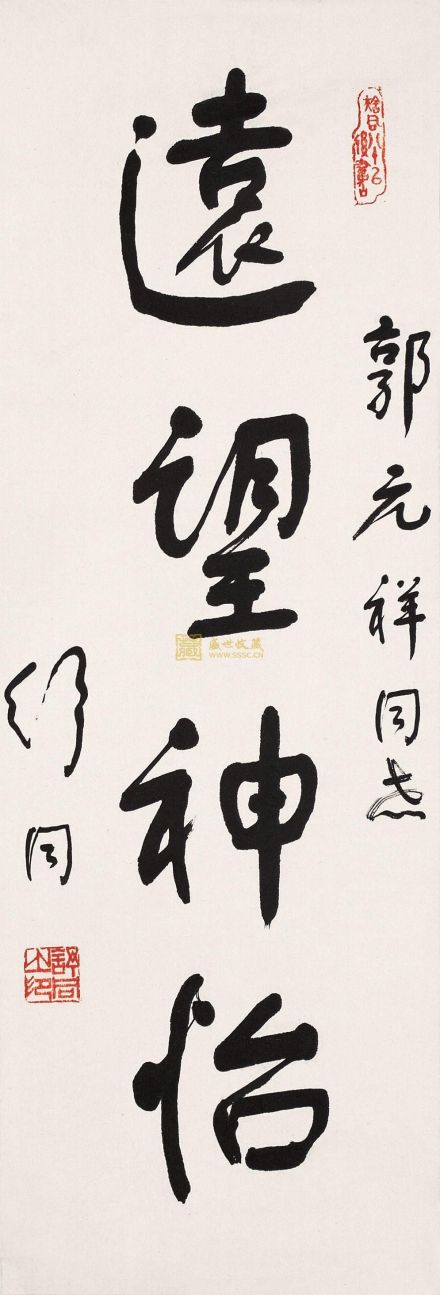 郭元祥同志
遠望神怡
舒同
盛世收藏
WWW.SSSC.CN